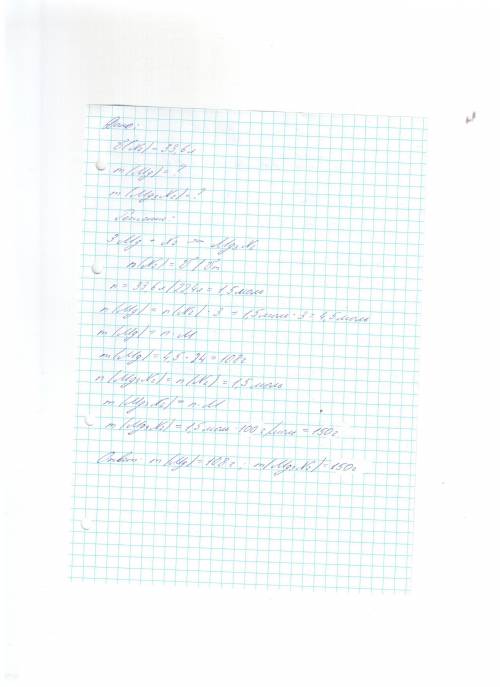 Дано:
V(N₂) = 33,6 л
m(Mg) = ?
m(Mg₃N₂) = ?
Решение:
3Mg + N₂ = Mg₃N₂
n(N₂) = V/Vm
n = 33,6 л/22,4 л = 1,5 моль
n(Mg) = n(N₂) · 3 = 1,5 моль · 3 = 4,5 моль
m(Mg) = n · M
m(Mg) = 4,5 · 24 = 108 г
n(Mg₃N₂) = n(N₂) = 1,5 моль
m(Mg₃N₂) = n · M
m(Mg₃N₂) = 1,5 моль · 100 г/моль = 150 г
Ответ: m(Mg) = 108 г; m(Mg₃N₂) = 150 г